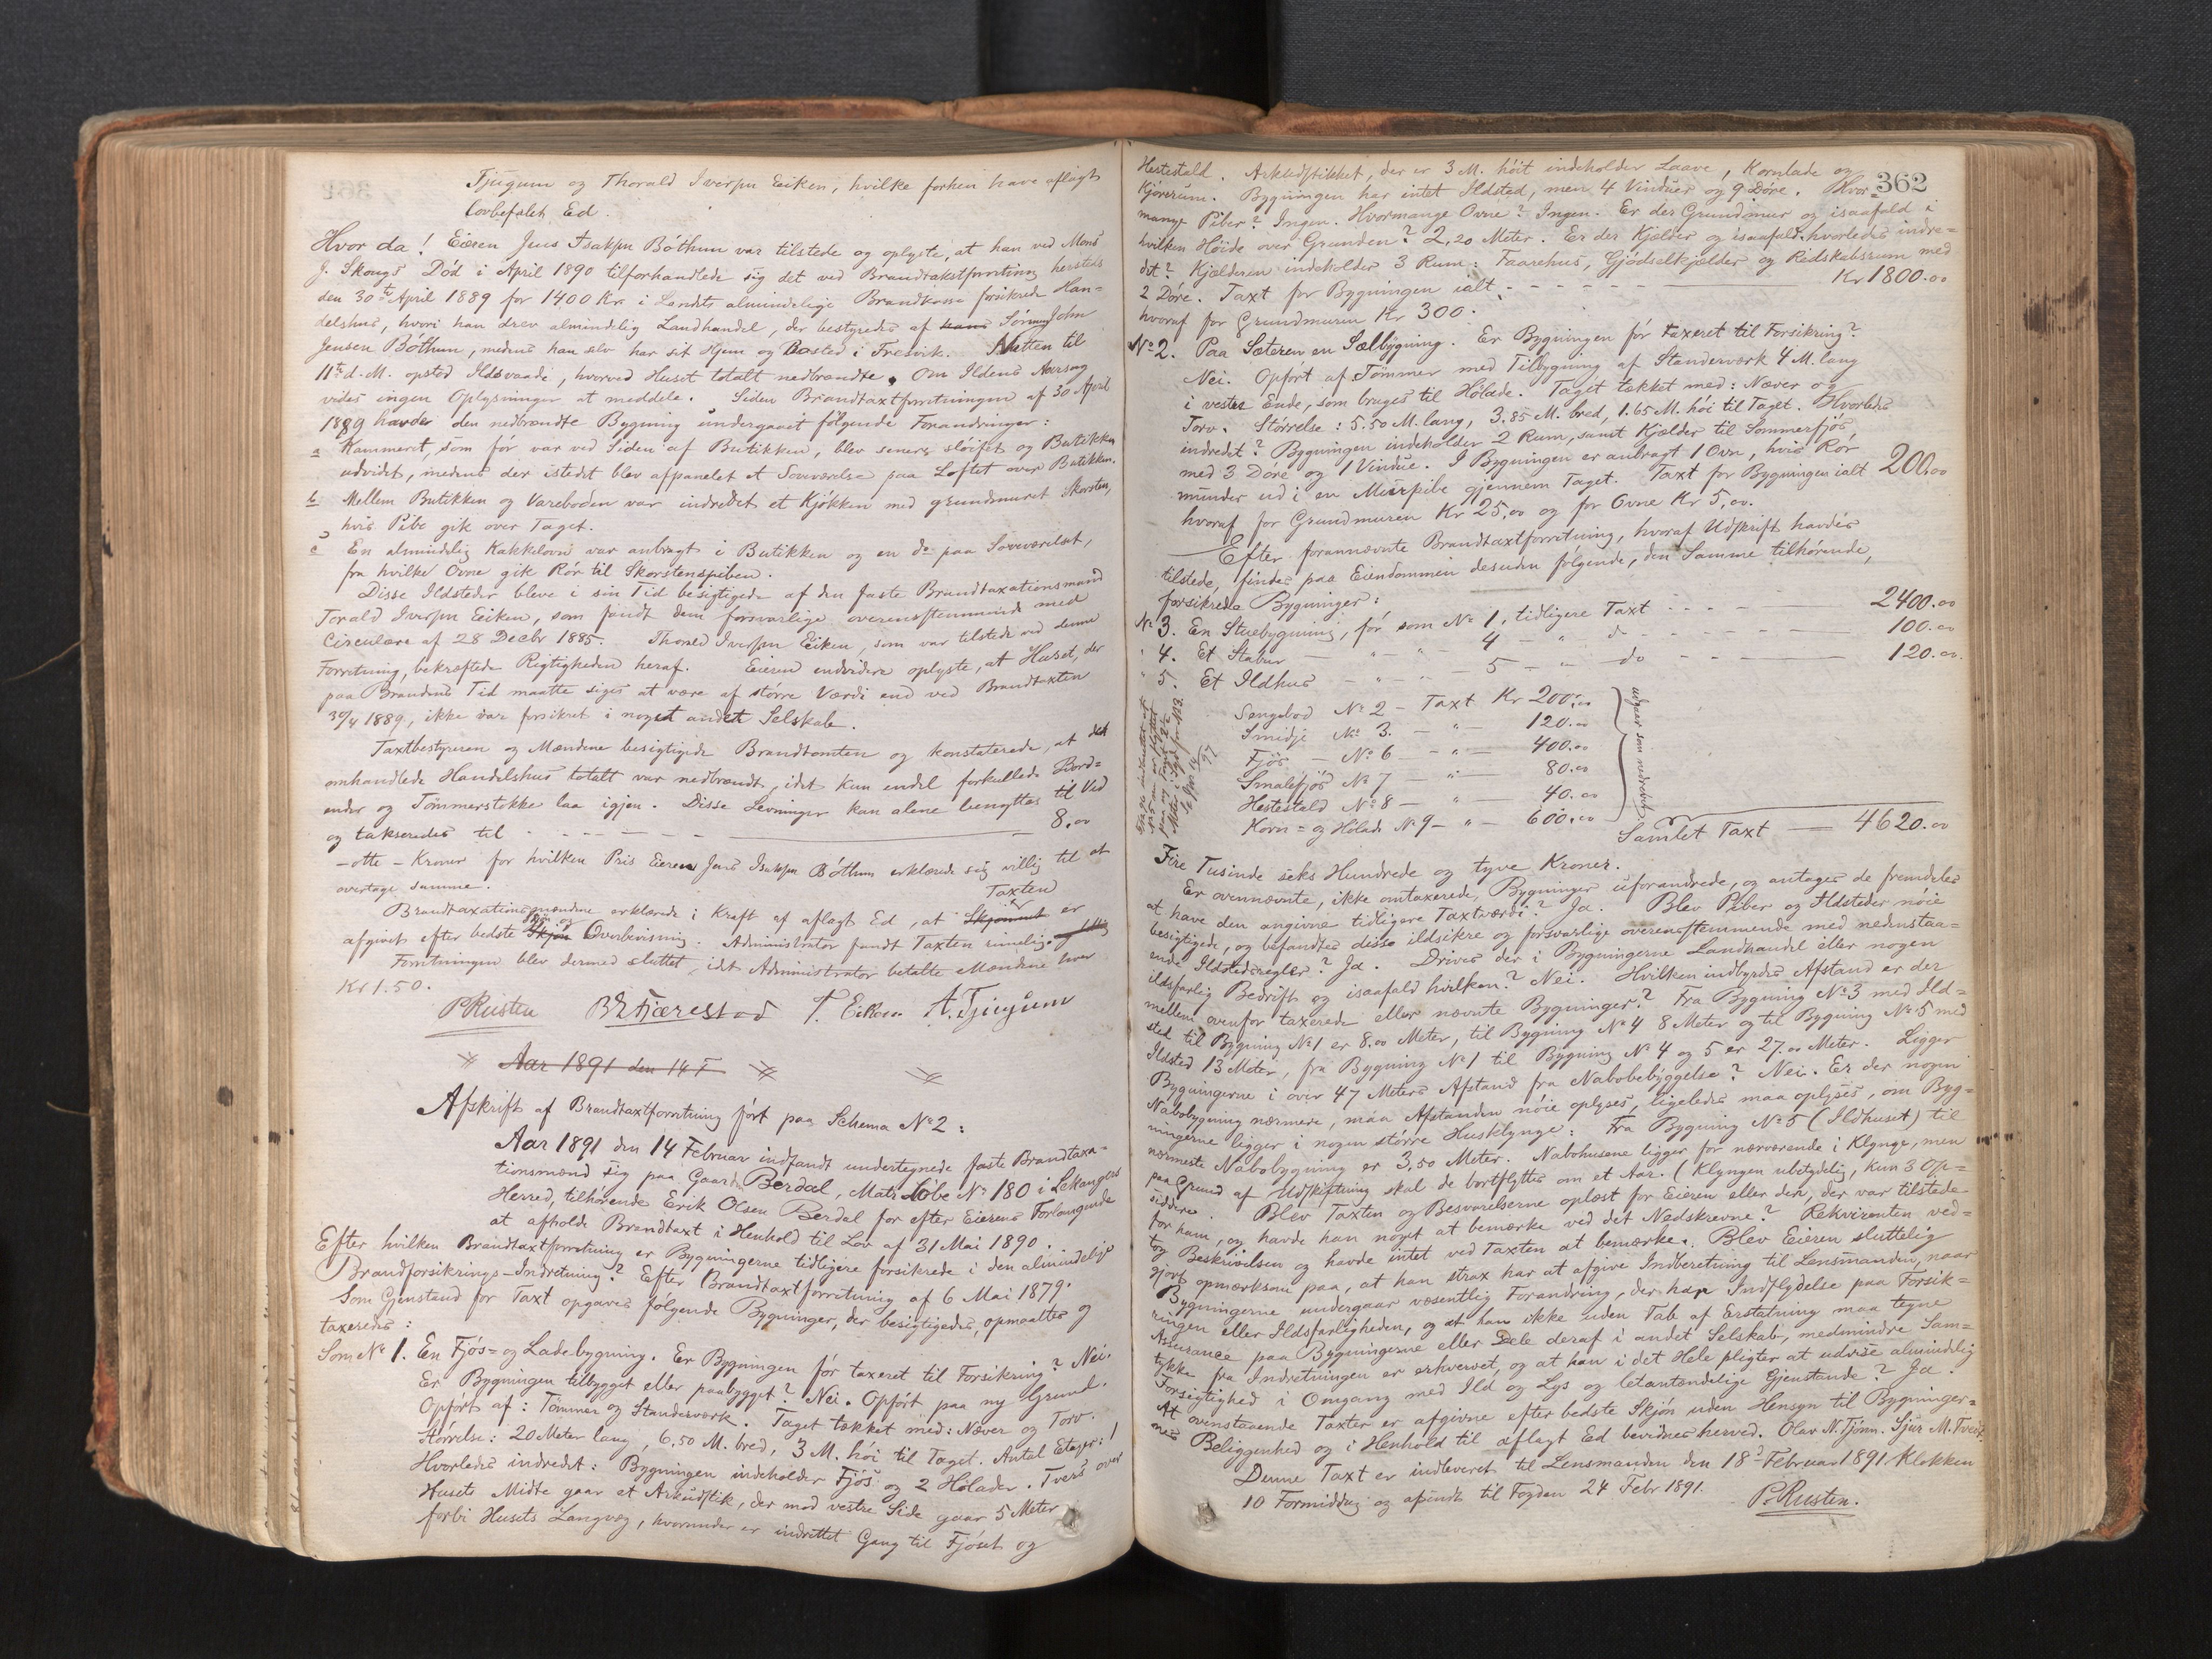 Tjugum og Thorald Iversen Eiken, hvilke forhen have aflagt
lovbefalet Ed.
Hvor da! Eieren Jens Isaksen Böthun var tilstede og oplyste, at han ved Mons
J. Skougs Död i April 1890 tilforhandlede sig det ved Brandtakstforretning hersteds
den 30te April 1889 for 1400 Kr. i Landets almindelige Brandkasse forsikrede Han-
delshus, hvori han drev almindelig Landhandel, der bestyredes af hans Sönnen John
Jensen Böthun, medens han selv har sit Hjem og Bosted i Fresvik. Natten til
11te d.M. opstod Ildsvaade, hvorved Huset totalt nedbrændte. Om Ildens Aarsag
vides ingen Oplysninger at meddele. Siden Brandtaxtforretningen af 30 April
1889 havde den nedbrændte Bygning undergaaet fölgende Forandringer:
a Kammeret, som för var ved Siden af Butikken, blev senere slöifet og Butikken
udvidet, medens der istedet blev afpanelet et Soveværelse paa Loftet over Butikken.
b Mellem Butikken og Vareboden var indredet et Kjökken med grundmuret Skorsten,
hvis Pibe gik over Taget.
c En almindelig Kakkelovn var anbragt i Butikken og en do paa Soveværelset,
fra hvilke Ovne gik Rör til Skorstenspiben.
Disse Ildsteder bleve i sin Tid besigtigede af den faste Brandtaxationsmand
Torald Iversen Eiken, som fandt dem forsvarlige overensstemmende med
Circulære af 28 Decbr 1885. Thorald Iversen Eiken, som var tilstede ved denne
Forretning, bekræftede Rigtigheden heraf. Eieren endvidere oplyste, at Huset, der
paa Brandens Tid maatte siges at være af större Værdi end ved Brandtaxten
30/4 1889, ikke var forsikret i noget andet Selskab.
Taxtbestyreren og Mændene besigtigede Brandtomten og konstaterede, at det
omhandlede Handelshus totalt var nedbrændt, idet kun endel forkullede Bord-
ender og Tömmerstokke laa igjen. Disse Levninger kan alene benyttes til Ved
og takseredes til - - - - - 8.00
- otte - Kroner for hvilken Pris Eieren Jens Isaksen Böthun erklærede sig villig til at
overtage samme.
Taxten
Brandtaxationsmændene erklærede i Kraft af aflagt Ed, at Skjönnet er
afgivet efter bedste Skjön og Overbevisning. Administrator fandt Taxten rimelig.
Forretningen blev dermed sluttet, idet Administrator betalte Mændene hver
Kr 1.50.
P Rusten B E Fjærestad T. Eiken A. Tjugum
Aar 1891 den 14 F
Afskrift af Brandtaxtforretning fört paa Schema No 2:
Aar 1891 den 14 Februar indfandt undertegnede faste Brandtaxa-
tionsmænd sig paa Gaard Berdal, Matr. Löbe No 180 i Lekangers
Herred, tilhörende Erik Olsen Berdal for efter Eierens Forlangende
at afholde Brandtaxt i Henhold til Lov af 31 Mai 1890.
Efter hvilken Brandtaxtforretning er Bygningerne tidligere forsikrede i den almindelige
Brandforsikrings-Indretning? Efter Brandtaxtforretning af 6 Mai 1879.
Som Gjenstand for Taxt opgaves fölgende Bygninger, der besigtigedes, opmaaltes og
taxeredes:
Som No 1. En Fjös- og Lade-bygning. Er Bygningen för taxeret til Forsikring? Nei.
Er Bygningen tilbygget eller paabygget? Nei. Opfört paa ny Grund.
Opfört af: Tömmer og Standerværk. Taget tækket med: Næver og Torv.
Störrelse: 20 Meter lang, 6,50 M. bred, 3 M. höi til Taget. Antal Etager: 1
Hvorledes indredet: Bygningen indeholder Fjös og 2 Hölader. Tvers over
Husets Midte gaar et Arkudstik, der mod vestre Side gaar 5 Meter
forbi Husets Langvæg, hvorunder er indrettet Gang til Fjöset og
362
Hestestald. Arkudstikket, der er 3 M. höit indeholder Laave, Kornlade og
Kjörerum. Bygningen har intet Ildsted, men 4 Vinduer og 9 Döre. Hvor-
mange Piber? Ingen. Hvormange Ovne? Ingen. Er der Grundmur og isaafald i
hvilken Höide over Grunden? 2,20 Meter. Er der Kjelder og isaafald hvorledes indre-
det? Kjælderen indeholder 3 Rum: Faarehus, Gjödselkjælder og Redskabsrum med
2 Döre. Taxt for Bygningen ialt - - - - - Kr 1800.00
hvoraf for Grundmuren Kr 300.
No 2. Paa Sæteren en Sælbygning. Er Bygningen för taxeret til Forsikring?
Nei. Opfört af Tömmer med Tilbygning af Standerværk 4 M. lang
i vestre Ende, som bruges til Hölade. Taget tækket med: Næver og
Torv. Störrelse: 5.50 M. lang, 3.85 M. bred, 1.65 M. höi til Taget. Hvorledes
indredet? Bygningen indeholder 2 Rum, samt Kjælder til Sommerfjös
med 3 Döre og 1 Vindue. I Bygningen er anbragt 1 Ovn, hvis Rör
munder ud i en Murpibe gjennem Taget. Taxt for Bygningen ialt 200.00
hvoraf for Grundmuren Kr 25,00 og for Ovne Kr 5,00.
Efter forannævnte Brandtaxtforretning, hvoraf Udskrift havdes
tilstede, findes paa Eiendommen desuden fölgende, den Samme tilhörende,
forsikrede Bygninger:
No 3. En Stuebygning, för som No 1, tidligere Taxt - - - 2400.00
" 4. Et Stabur - " - " - 4 - " - do - - - 100.00
" 5. Et Ildhus - " - " - 5 - " - do - - - 120.00
Sengebod No 2 - Taxt Kr 200.00
Smidje No 3. - " - 120.00
Fjös - No 6 - " - 400.00
Smalefjös No 7 - " - 80.00
Hestestald No 8 - " - 40.00
Korn- og Hölade No 9 - " - 600.00
udgaar som nedrevet
Samlet Taxt - 4620.00
Fire Tusinde seks Hundrede og tyve Kroner.
Er ovennævnte, ikke omtaxerede, Bygninger uforandrede, og antages de fremdeles
at have den angivne tidligere Taxtværdi? Ja. Blev Piber og Ildsteder nöie
besigtigede, og befandtes disse ildsikre og forsvarlige overensstemmende med nedenstaa-
ende Ildstedsregler? Ja. Drives der i Bygningerne Landhandel eller nogen
ildsfarlig Bedrift og isaafald hvilken? Nei. Hvilken indbyrdes Afstand er der
mellem ovenfor taxerede eller nævnte Bygninger? Fra Bygning No 3 med Ild-
sted til Bygning No 1 er 8.00 Meter, til Bygning No 4 8 Meter og til Bygning No 5 med
Ildsted 13 Meter, fra Bygning No 1 til Bygning No 4 og 5 er 27.00 Meter. Ligger
Bygningerne i over 47 Meters Afstand fra Nabobebyggelse? Nei. Er der nogen
Nabobygning nærmere, maa Afstanden nöie oplyses, ligeledes maa oplyses, om Byg-
ningerne ligger i nogen större Husklynge: Fra Bygning No 5 (Ildhuset) til
nærmeste Nabobygning er 3,50 Meter. Nabohusene ligger for nærværende i Klynge, men
paa Grund af Udskiftning skal de bortflyttes om et Aar. (Klyngen ubetydelig, kun 3 Op-
siddere. Blev Taxten og Besvarelserne oplæst for Eieren eller den, der var tilstede
for ham, og havde han noget at bemærke ved det Nedskrevne? Rekvirenten ved-
tog Beskrivelsen og havde intet ved Taxten at bemærke. Blev Eieren sluttelig
gjort opmærksom paa, at han strax har at afgive Indberetning til Lensmanden, naar
Bygningerne undergaar væsentlig Forandring, der har Indflydelse paa Forsik-
ringen eller Ildsfarligheden, og at han ikke uden Tab af Erstatning maa tegne
Assurance paa Bygningerne eller Dele deraf i andet Selskab, medmindre Sam-
tykke fra Indretningen er erhvervet, og at han i det Hele pligter at udvise almindelig
Forsigtighed i Omgang med Ild og Lys og letantændelige Gjenstande? Ja.
At ovenstaaende Taxter er afgivne efter bedste Skjön uden Hensyn til Bygninger-
nes Beliggenhed og i Henhold til aflagt Ed bevidnes herved. Olav N. Tjönn. Sjur M. Tveit.
Denne Taxt er indleveret til Lensmanden den 18de Februar 1891 Klokken
10 Formiddag og afsendt til Fogden 24 Febr 1891.
P. Rusten.